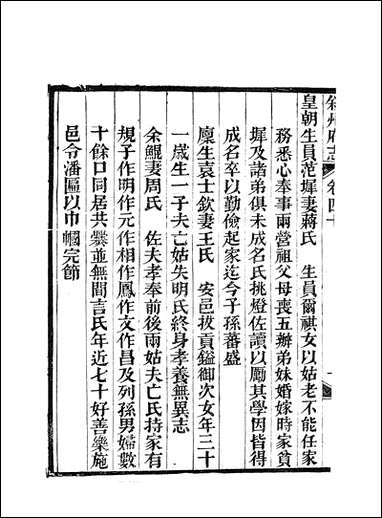 叙州府志 卷四十
皇朝生員范墀妻蔣氏 生員爾祺女以姑老不能任家
務悉心奉事兩營祖父母喪五辦弟妹婚嫁時家貧
墀及諸弟俱未成名氏挑燈佐讀以勵其學因皆得
成名卒以勤儉起家迄今子孫蕃盛
廪生袁士欽妻王氏 安邑拔貢鎰御次女年三十
一歲生一子夫亡姑失明氏終身孝養無異志
余鯤妻周氏 佐夫孝奉前後兩姑夫亡氏持家有
規子作明作元作相作鳳作文作昌及列孫男婦數
十餘口同居共爨並無間言氏年近七十好善樂施
邑令潘區以巾幗完節